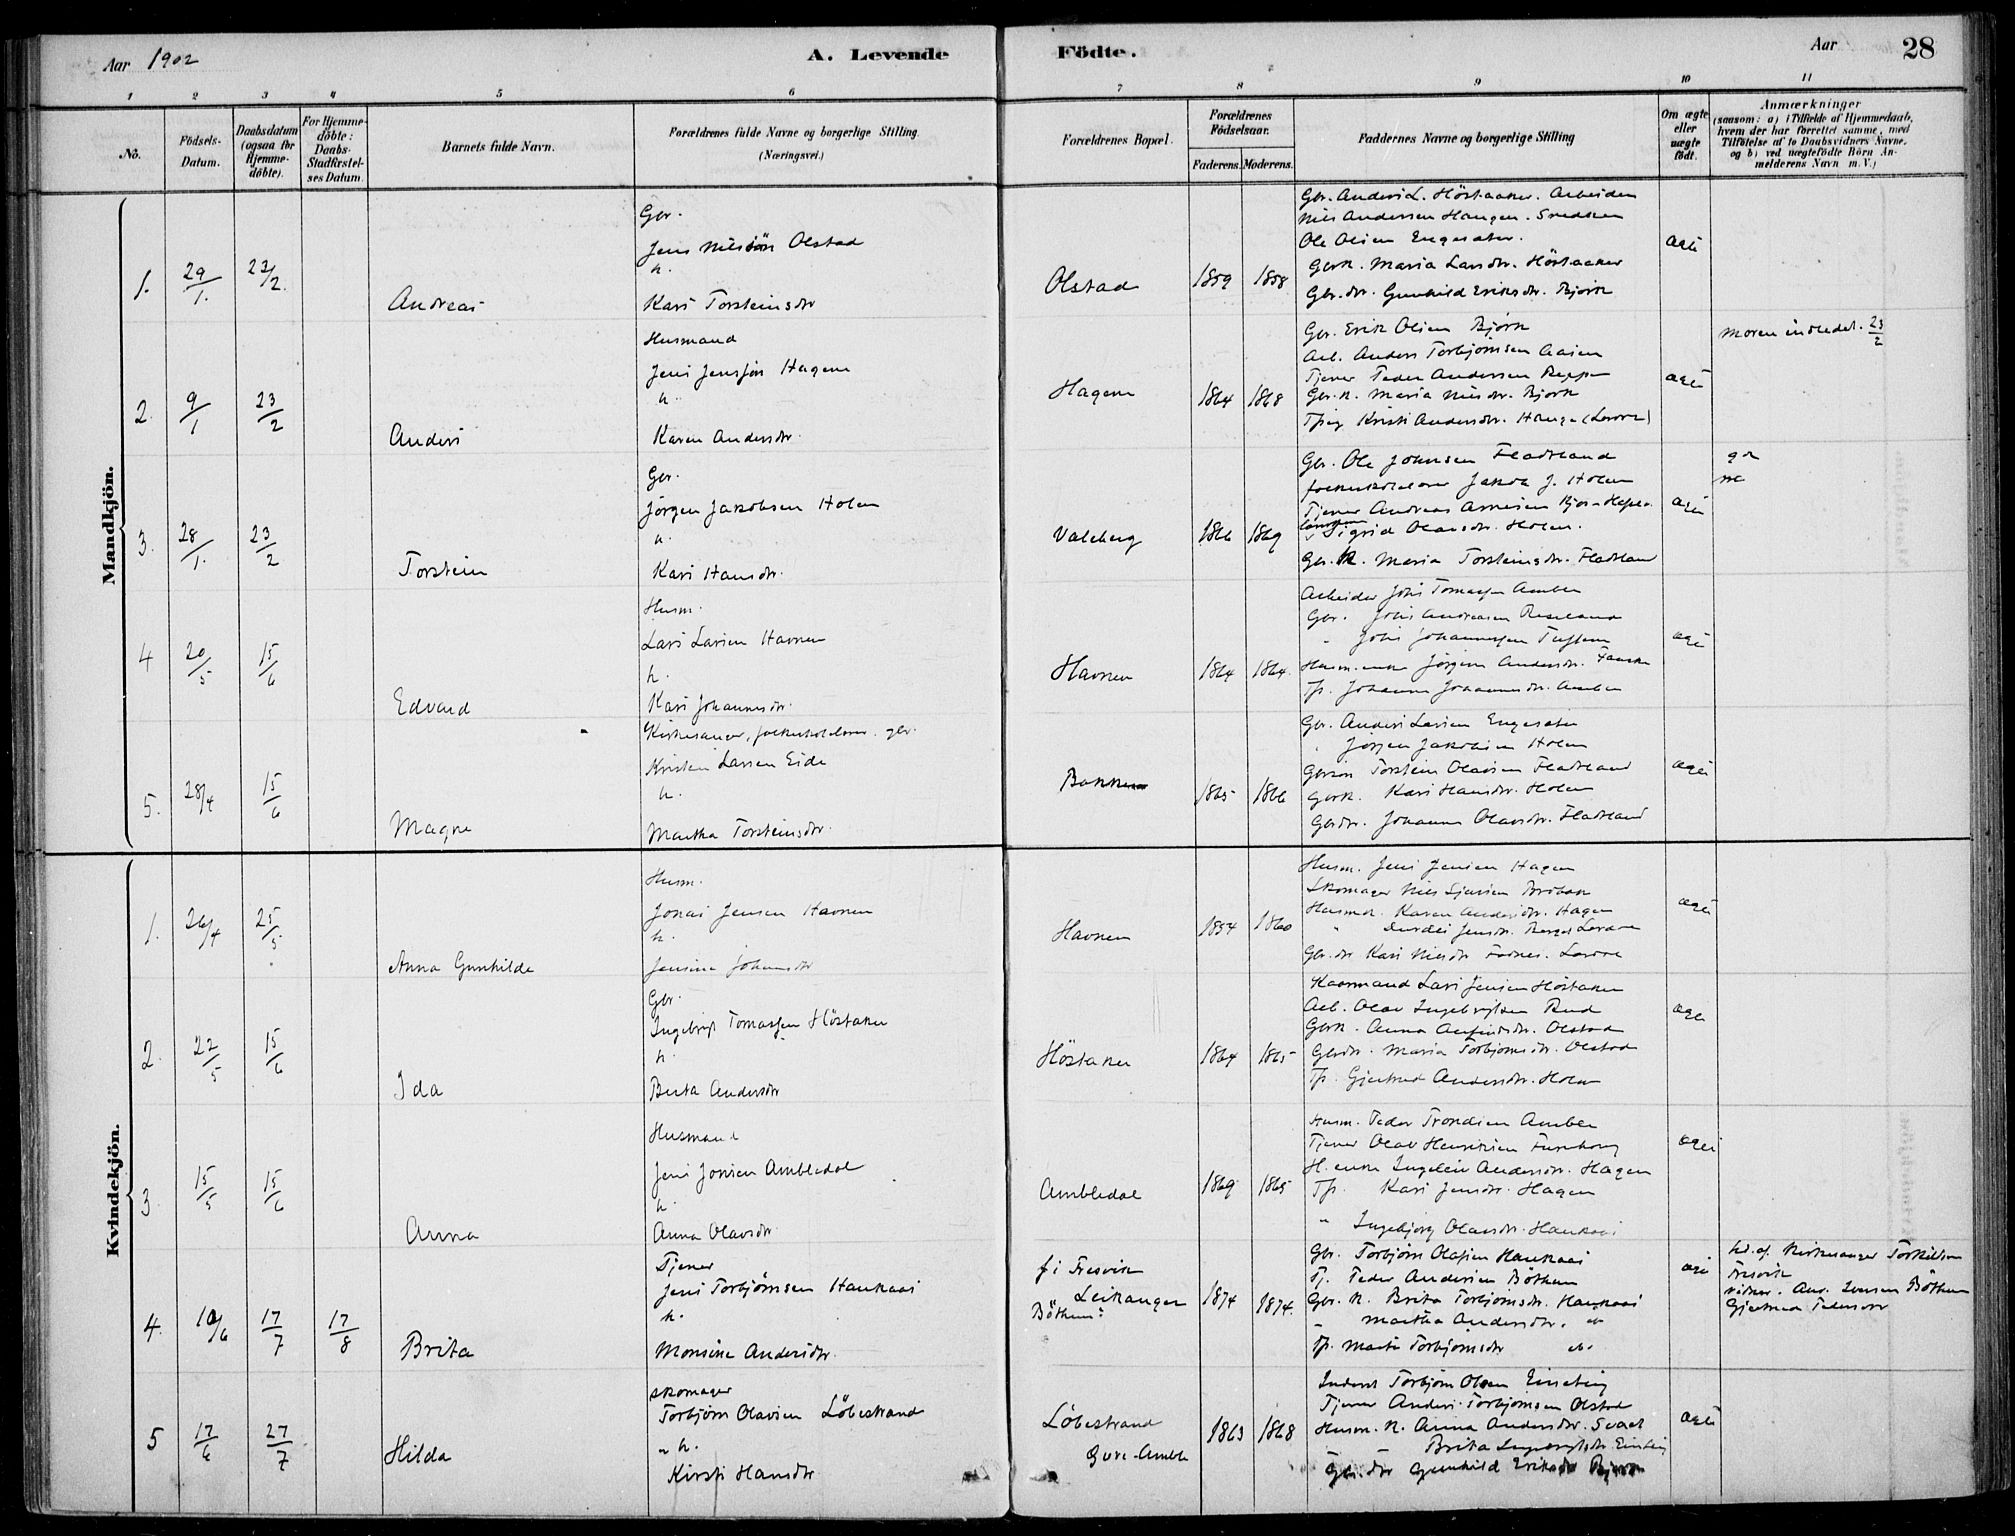 Aar 1902
A. Levende
Födte.
Aar
28
1 2 3 4 5 6 7 8 9 10 11
No.
Födsels-Datum.
Daabsdatum (ogsaa for Hjemme-döbte).
For Hjemme-döbte: Daabs-Stadfæstel-ses Datum.
Barnets fulde Navn.
Forældrenes fulde Navne og borgerlige Stilling. (Næringsvei.)
Forældrenes Bopæl.
Forældrenes Födselsaar.
Faderens. Moderens.
Faddernes Navne og borgerlige Stilling
Om ægte eller uægte födt.
Anmærkninger
(saasom: a) i Tilfælde af Hjemmedaab, hvem der har forrettet samme, med Tilföielse af to Daabsvidners Navne, og b) ved uægtefödte Börn An-melderens Navn m. V.)
Mandkjön.
1. 29/1. 23/2. Andreas
Gbr.
Jens Nilssön Olstad
h.
Kari Torsteinsdtr
Olstad 1859 1858
Gbr. Anders L. Höstaaker. Arbeider
Nils Andersen Haugen. Snedker
Ole Olsen Engesæter.
Gbrk. Maria Larsdtr. Höstaaker
Gbr.dtr. Gunhild Eriksdtr. Björk
ægte
2. 9/1 23/2 Anders
Husmand
Jens Jenssön Hagen
h.
Karen Andersdtr.
Hagen 1864 1868
Gbr. Erik Olsen Björk
Arb. Anders Torbjörnsen Aasen
Tjener Peder Andersen
Gbr.k. Maria Nilsdtr. Björk
Kristi Andersdtr. Hauge
ægte
Moren indledet. 23/2
3. 28/1. 23/2 Torstein
Gbr.
Jörgen Jakobsen Holen
h.
Kari Hansdtr.
Valeberg 1866 1869
Gbr. Ole Johnsen Fladeland
Jakob J. Holen
Tjener Andreas Arnesen
Sigrid Olavsdtr. Holen.
Gbr. K. Maria Torsteinsdtr. Fladeland
ægte
4 20/5 15/6 Edvard
Husm.
Lars Larsen Havnen
h.
Kari Johannesdtr.
Havnen 1864 1864.
Arbeider Johs Tomassen Amble
Gbr. Johs Andreasen
" Johs Johannessen
Husm.enke Jörgine Andersdtr.
Johanna Johannesdtr. Amble
ægte
5. 28/4 15/6 Magne
Kirkesanger, folkeskolelærer. gbr.
Kristen Larsen Eide
h.
Martha Torsteinsdtr.
Bakken 1865 1866
Gbr. Anders Larsen Engesæter
" Jörgen Jakobsen Holen
Gbrsön Torstein Olavsen Fladeland
Gbrk. Kari Hansdtr. Holen
Gbrdtr. Johanna Olavsdtr. Fladeland
ægte
Kvindekjön.
1. 26/4 25/5. Anna Gunhilde
Husm.
Jonas Jensen Havnen
h.
Jensine Johansdtr
Havnen 1854 1860
Husm. Jens Jensen Hagen
Skomager Nils
Husmk. Karen Andersdtr. Hagen
Gbr.dtr Kari Nilsdtr
ægte
2. 22/5 15/6 Ida
Gbr.
Ingebrigt Tomassen Höstaker
h.
Berta Andersdtr
Höstaker 1864 1865
Kaarmand Lars Jensen Höstaker
Arb. Olav Ingebrigtsen Rud
Gbrk. Anna Olstad
Gbrdtr. Maria Torbjörnsdtr. Olstad
Gjertrud Andersdtr. Holen
3. 15/5 15/6 Anna
Husmand
Jens Jonsen Ambledal
h
Anna Olavsdtr
Ambledal 1869 1865
Husm. Peder Trondsen Amble
Tjener Olav Henriksen
H.enke Ingeleiv Andersdtr. Hagen
Kari Jensdtr. Hagen
" Ingebjörg Olavsdtr. Haukaas
ægte
4. 10/6 17/7 17/8 Brita
Tjener
Jens Torbjörnsen Haukaas
h.
Monsine Andersdtr.
f i Fresvik
Leikanger
Böthun: 1874 1874.
Gbr. Torbjörn Olafsen Haukaas
Tj. Peder Andersen Böthun
Gbr. K. Brita Torbjörnsdtr. Haukaas
" Martha Andersdtr.
Marta Torbjörnsdtr
ægte
hd. af. Kirkesanger Torkildsen
Fresvik
vidner. And. Iversen Böthun
Gjertrud Pedersdtr
5 17/6 27/7 Hilda
Skomager
Torbjörn Olavsen Löbestrand
" h.
Kirsti Hansdtr
Löbestrand
Gvre-Amble 1863 1868
Inderst Torbjörn Olsen
Tjener Anders Torbjörnsen Olstad
Husm. K. Anna Andersdtr.
" " Brita Ingebrigtsdtr.
Gbr. dtr Gunhild Eriksdtr Björk
ægte